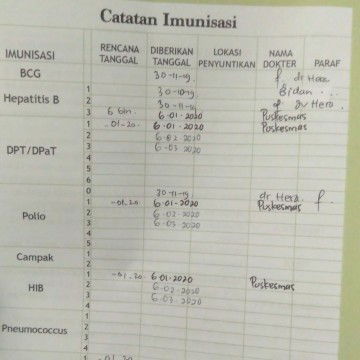 Catatan Imunisasi
IMUNISASI RENCANA TANGGAL DIBERIKAN TANGGAL LOKASI PENYUNTIKAN NAMA DOKTER PARAF
BCG 30-11-19 dr Hera
Hepatitis B 1 30-10-19 Bidan
2 30-11-19 dr Hera
3 6 bln 6-01-2020 Puskesmas
DPT/DPaT 1 -01-20 6-01-2020 Puskesmas
2 6-02-2020
3 6-03-2020
4
5
6
Polio 0 30-11-19 dr Hera
1 -01-20 6-01-2020 Puskesmas
2 6-02-2020
3 6-03-2020
4
5
Campak
HIB 1 -01-20 6-01-2020 Puskesmas
2 6-02-2020
3 6-03-2020
4
Pneumococcus 1
2
3
4
1 -01-20